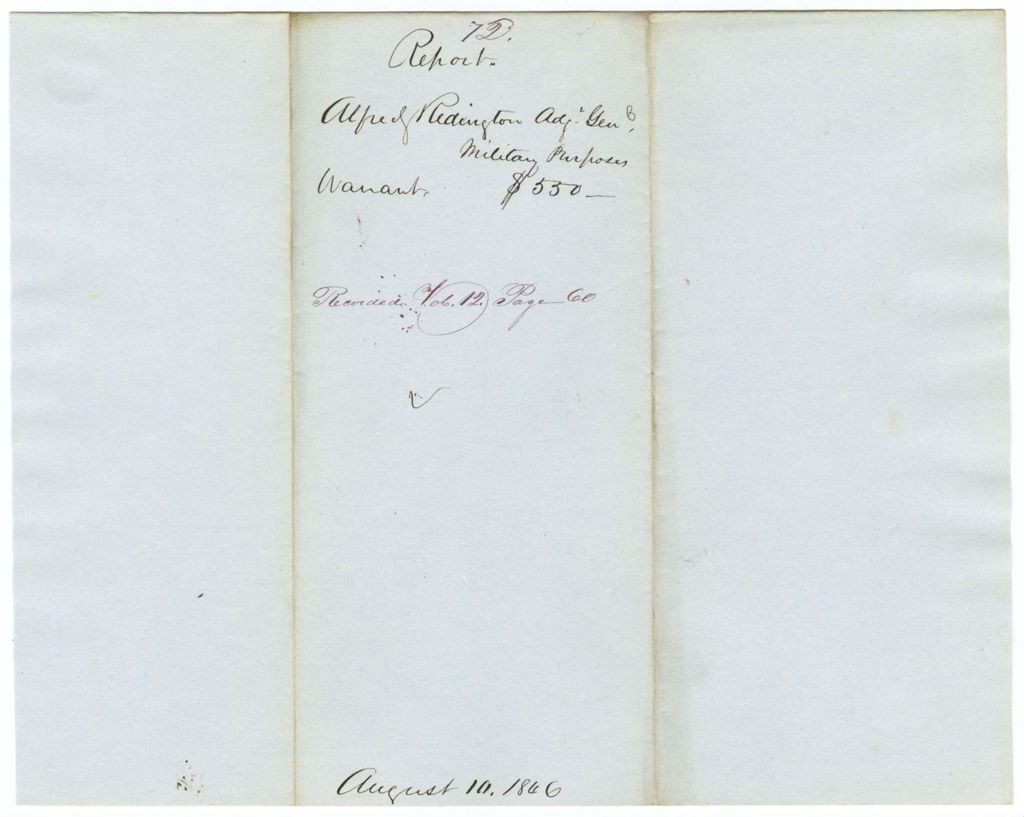 72.
Report.
Alfred Redington Adjt Genl.
Military Purposes
Warrant. $550—
Recorded Vol. 12. Page 60
August 10. 1846